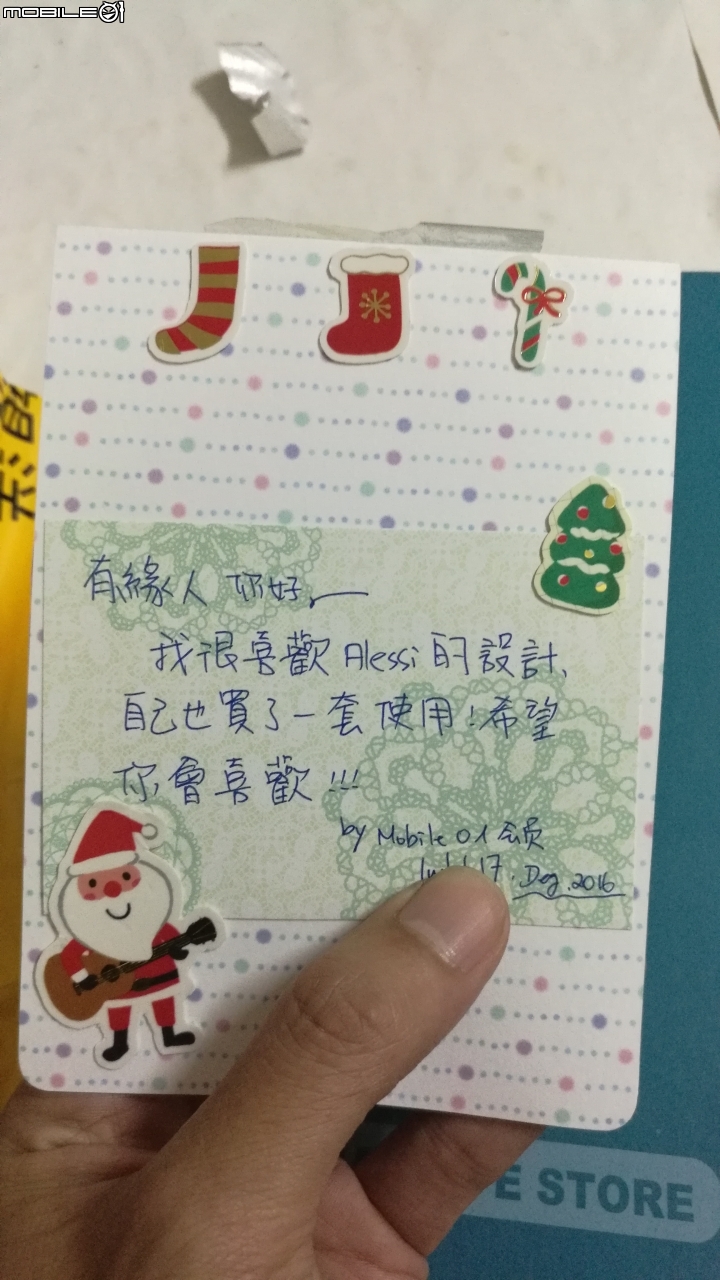 MOBILE01
有緣人 你好,
我很喜歡 Alessi 的設計,
自己也買了一套使用!希望
你會喜歡!!!
by Mobile 01 会员
17. Dec. 2016
STORE